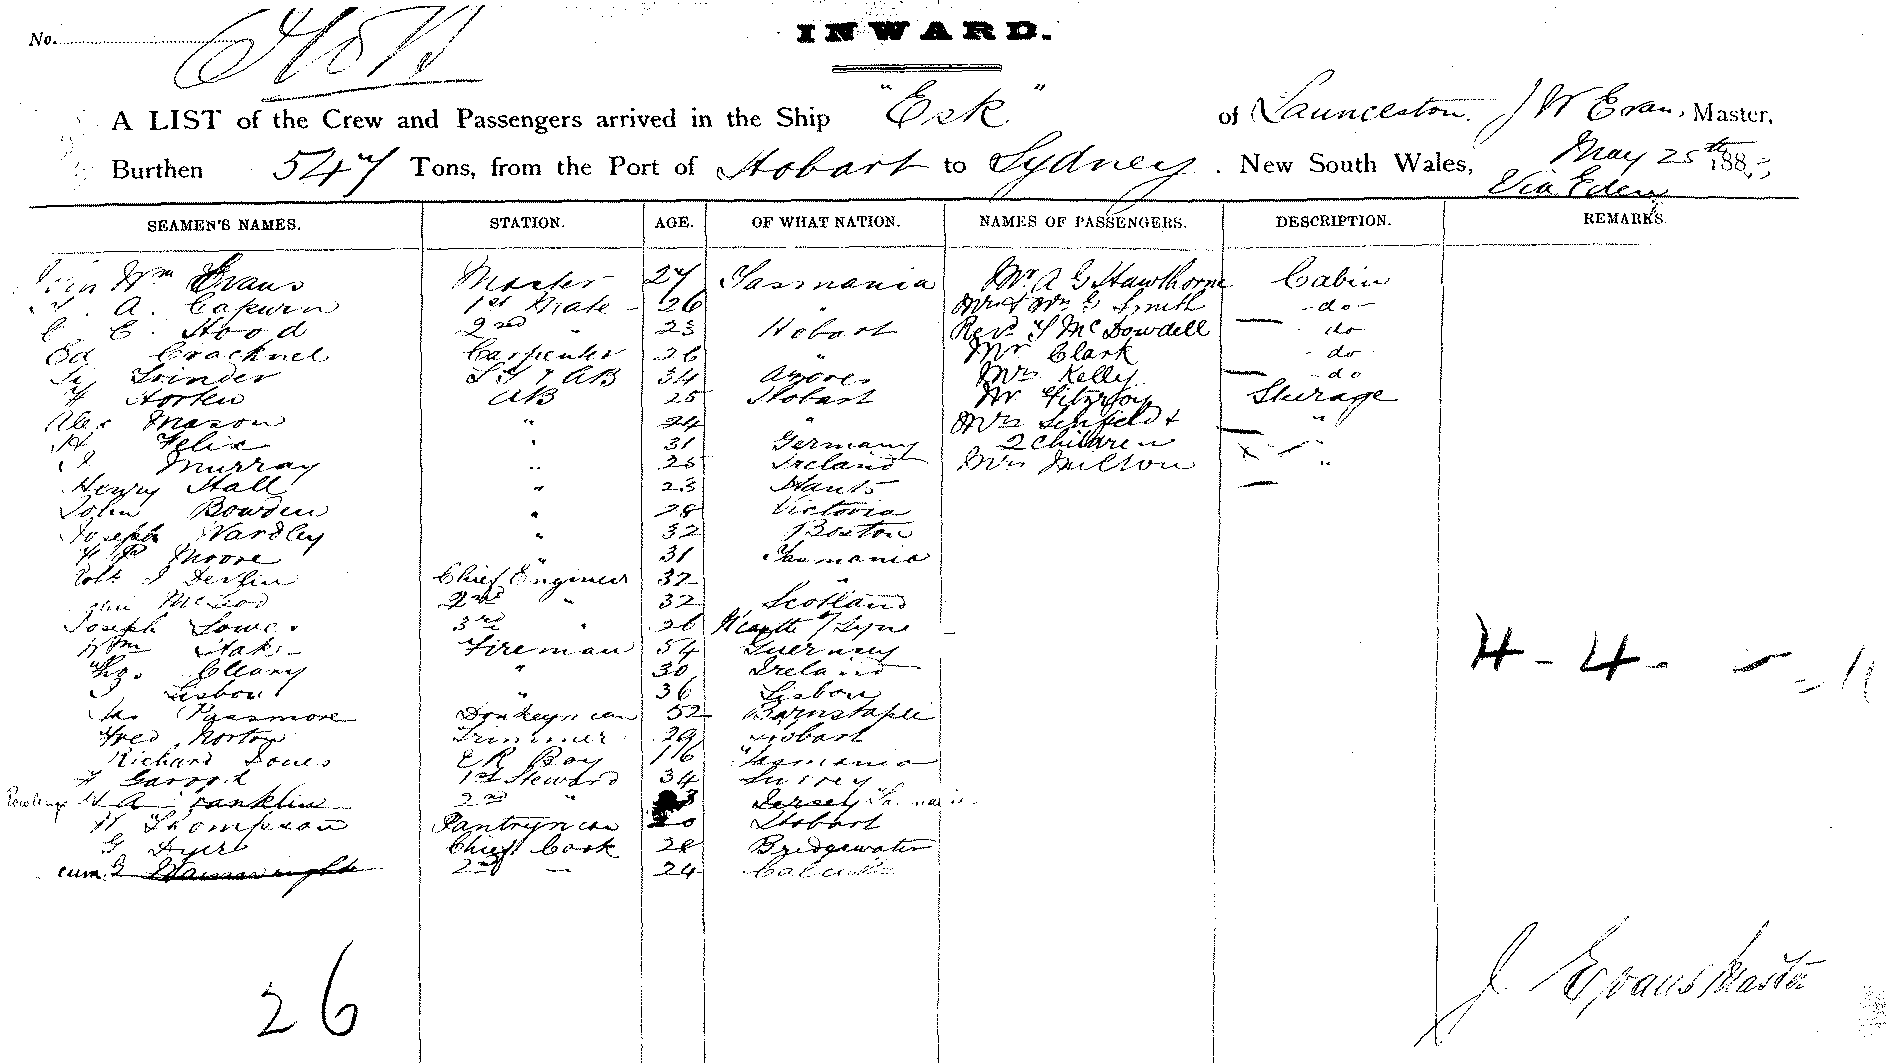 No.
INWARD.
A LIST of the Crew and Passengers arrived in the Ship "Esk" of Launceston. J W Evans, Master,
Burthen 547 Tons, from the Port of Hobart to Sydney. New South Wales, May 25th 188
Via Eden
SEAMEN'S NAMES. STATION. AGE. OF WHAT NATION. NAMES OF PASSENGERS. DESCRIPTION. REMARKS.
Wm Evans Master 27 Tasmania Mr A G Hawthorne Cabin
A. Capurn 1st Mate 26 " Mr & Mrs G Smith do
E. Hood 2nd " 23 Hobart Revd McDowdell do
Ed Cracknel Carpenter 26 " Mr Clark do
Grinder AB 34 Azores Mrs Kelly do
Horten AB 25 Hobart Mr Fitzroy Steerage
Alec Mason " 24 " Mrs &  "
H Felix " 31 Germany 2 Children
Murray " 25 Ireland Mrs Milton "
Henry Hall " 23 Hants
John Bowden " 28 Victoria
Joseph Yardley " 32 Boston
Moore " 31 Tasmania
Robt J Devlin Chief Engineer 32 "
John McLeod 2nd " 32 Scotland
Joseph Lowe 3rd " 26
Wm Fireman 54 Guernsey
Thos. Cleary " 30 Ireland
Lisbon " 36 Lisbon
Passmore Donkeyman 52 Barnstaple
Fred Norton Trimmer 29 Hobart
Richard Jones E R Boy 16 Tasmania
Garrod 1st Steward 34 Surrey
H A Franklin 2nd " Jersey
H Thompson Pantryman Hobart
G Dyer Chief Cook 28 Bridgewater
2nd 24
4 - 4 -
26
J. Evans Master